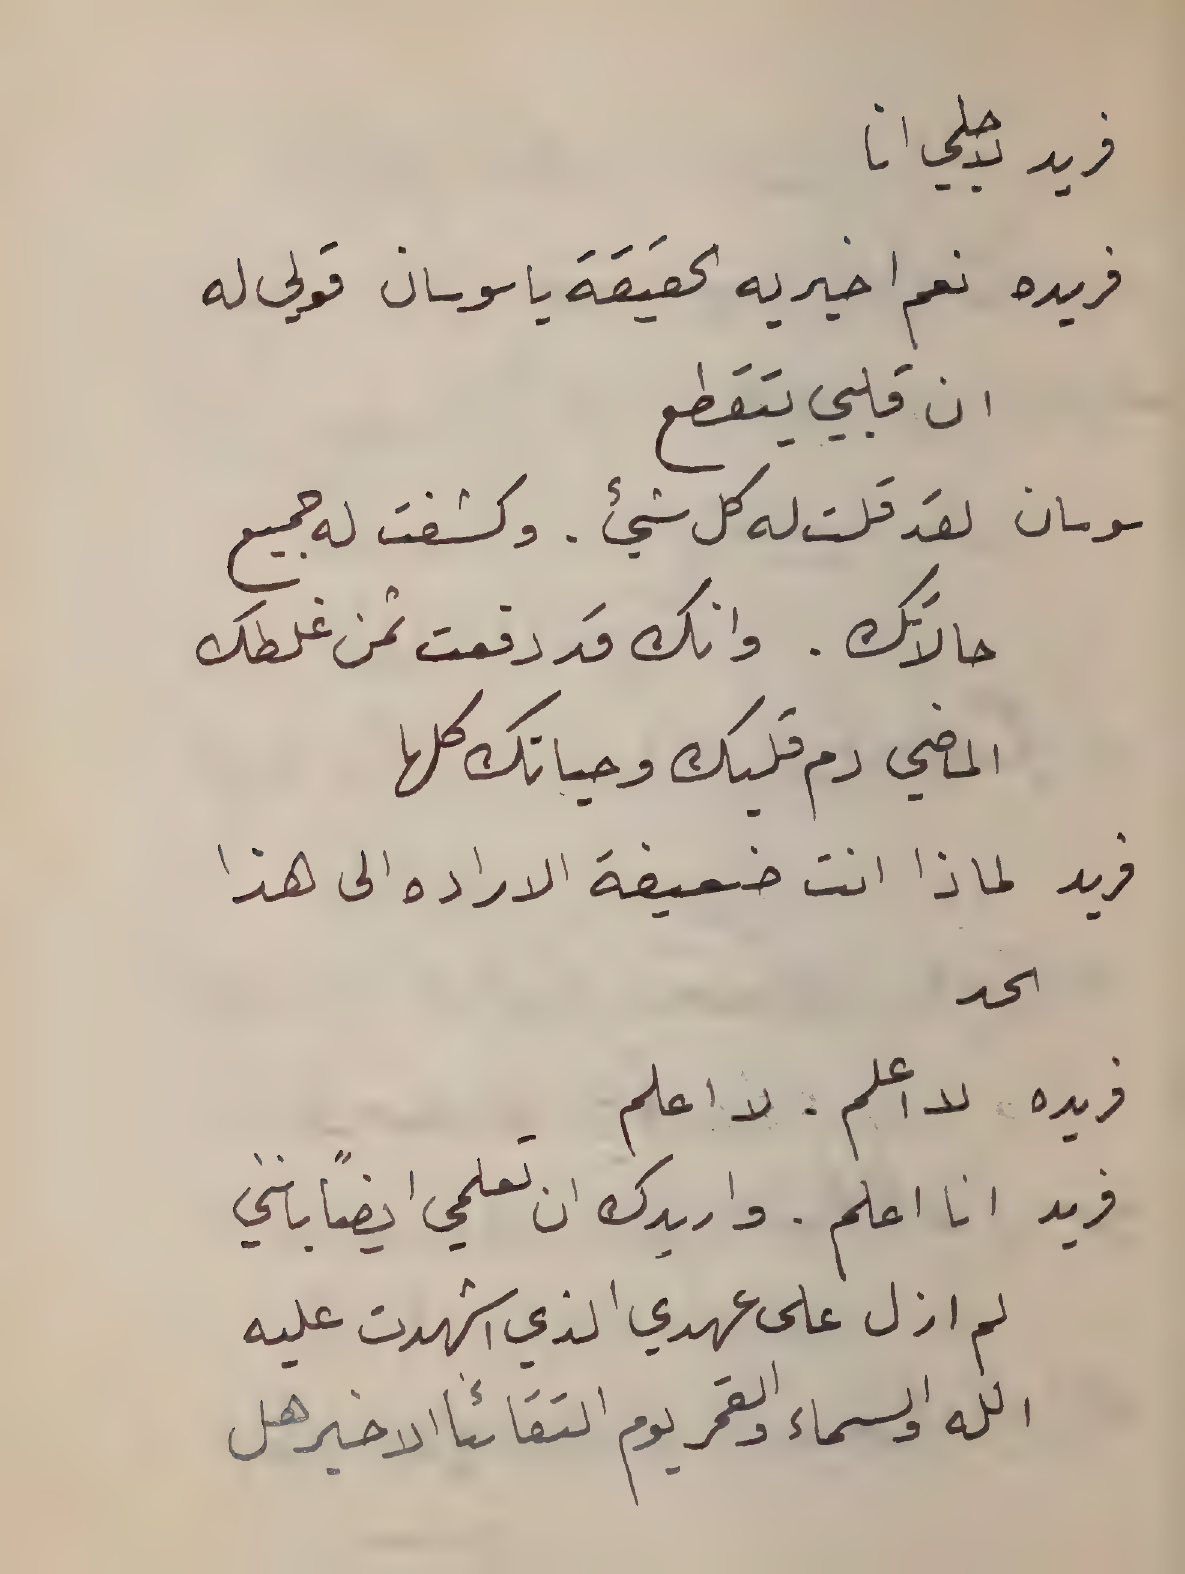 فريد لاجلي انا
فريده نعم اخبريه الحقيقة يا سوسان قولي له
ان قلبي يتقطع
سوسان لقد قلت له كل شيئ . وكشفت له جميع
حالاتك . وانك قد دفعت ثمن غلطك
الماضي دم قلبك وحياتك كلها
فريد لماذا انت ضعيفة الاراده الى هذا
الحد
فريده لا اعلم . لا اعلم
فريد انا اعلم . واريدك ان تعلمي ايضاً بانني
لم ازل على عهدي الذي اشهدت عليه
الله والسماء والقمر يوم التقائنا الاخير هل